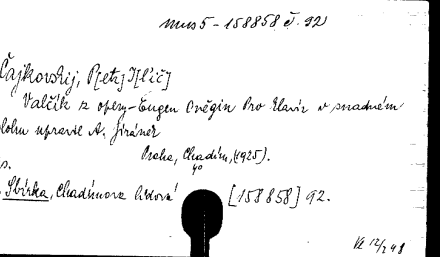 mus 5 - 158858 č. 92
Čajkovskij, P[etr] I[lič]
Valčík z opery Eugen Oněgin Pro klavír v snadném
slohu upravil A. Jiránek
Praha, Chadím, (1925).
40
s.
Sbírka, Chadímova lidová
[158858] 92.